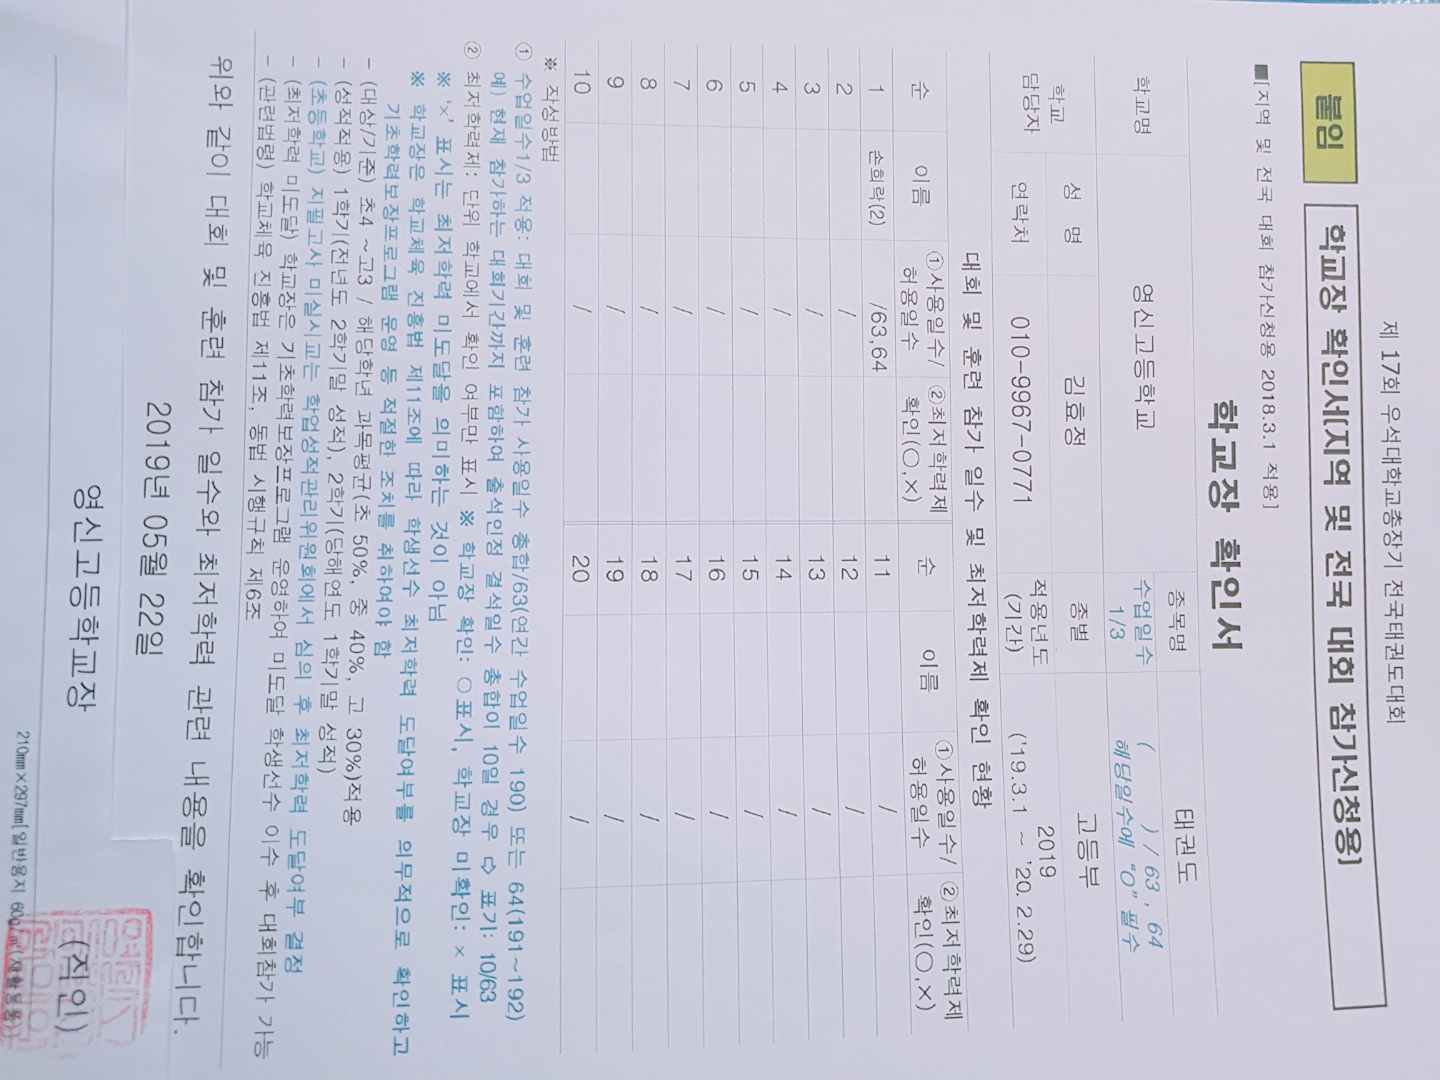 제 17회 우석대학교총장기 전국태권도대회
붙임 학교장 확인서[지역 및 전국 대회 참가신청용]
■[지역 및 전국 대회 참가신청용 2018.3.1 적용]
학교장 확인서
학교명 영신고등학교 종목명 태권도
수업일수 1/3 ( ) / 63 , 64
해당일수에 "O" 필수
학교 담당자 성 명 김효정 종별 고등부
연락처 010-9967-0771 적용년도 (기간) 2019
('19.3.1 ~ '20.2.29)
대회 및 훈련 참가 일수 및 최저학력제 확인 현황
순 이름 ①사용일수/허용일수 ②최저학력제 확인(○,×) 순 이름 ①사용일수/허용일수 ②최저학력제 확인(○,×)
1 손희락(2) /63,64 11 /
2 / 12 /
3 / 13 /
4 / 14 /
5 / 15 /
6 / 16 /
7 / 17 /
8 / 18 /
9 / 19 /
10 / 20 /
※ 작성방법
① 수업일수1/3 적용: 대회 및 훈련 참가 사용일수 총합/63(연간 수업일수 190) 또는 64(191~192)
예) 현재 참가하는 대회기간까지 포함하여 출석인정 결석일수 총합이 10일 경우 ⇨ 표기: 10/63
② 최저학력제: 단위 학교에서 확인 여부만 표시 ※ 학교장 확인: ○ 표시, 학교장 미확인: × 표시
※ '×' 표시는 최저학력 미도달을 의미하는 것이 아님
※ 학교장은 학교체육 진흥법 제11조에 따라 학생선수 최저학력 도달여부를 의무적으로 확인하고
기초학력보장프로그램 운영 등 적절한 조치를 취하여야 함
- (대상/기준) 초4 ~고3 / 해당학년 과목평균(초 50%, 중 40%, 고 30%)적용
- (성적적용) 1학기(전년도 2학기말 성적), 2학기(당해연도 1학기말 성적)
- (초등학교) 지필고사 미실시교는 학업성적관리위원회에서 심의 후 최저학력 도달여부 결정
- (최저학력 미도달) 학교장은 기초학력보장프로그램 운영하여 미도달 학생선수 이수 후 대회참가 가능
- (관련법령) 학교체육 진흥법 제11조, 동법 시행규칙 제6조
위와 같이 대회 및 훈련 참가 일수와 최저학력 관련 내용을 확인합니다.
2019년 05월 22일
영신고등학교장 (직인)
210mm×297mm[일반용지 60g/㎡(재활용품)]